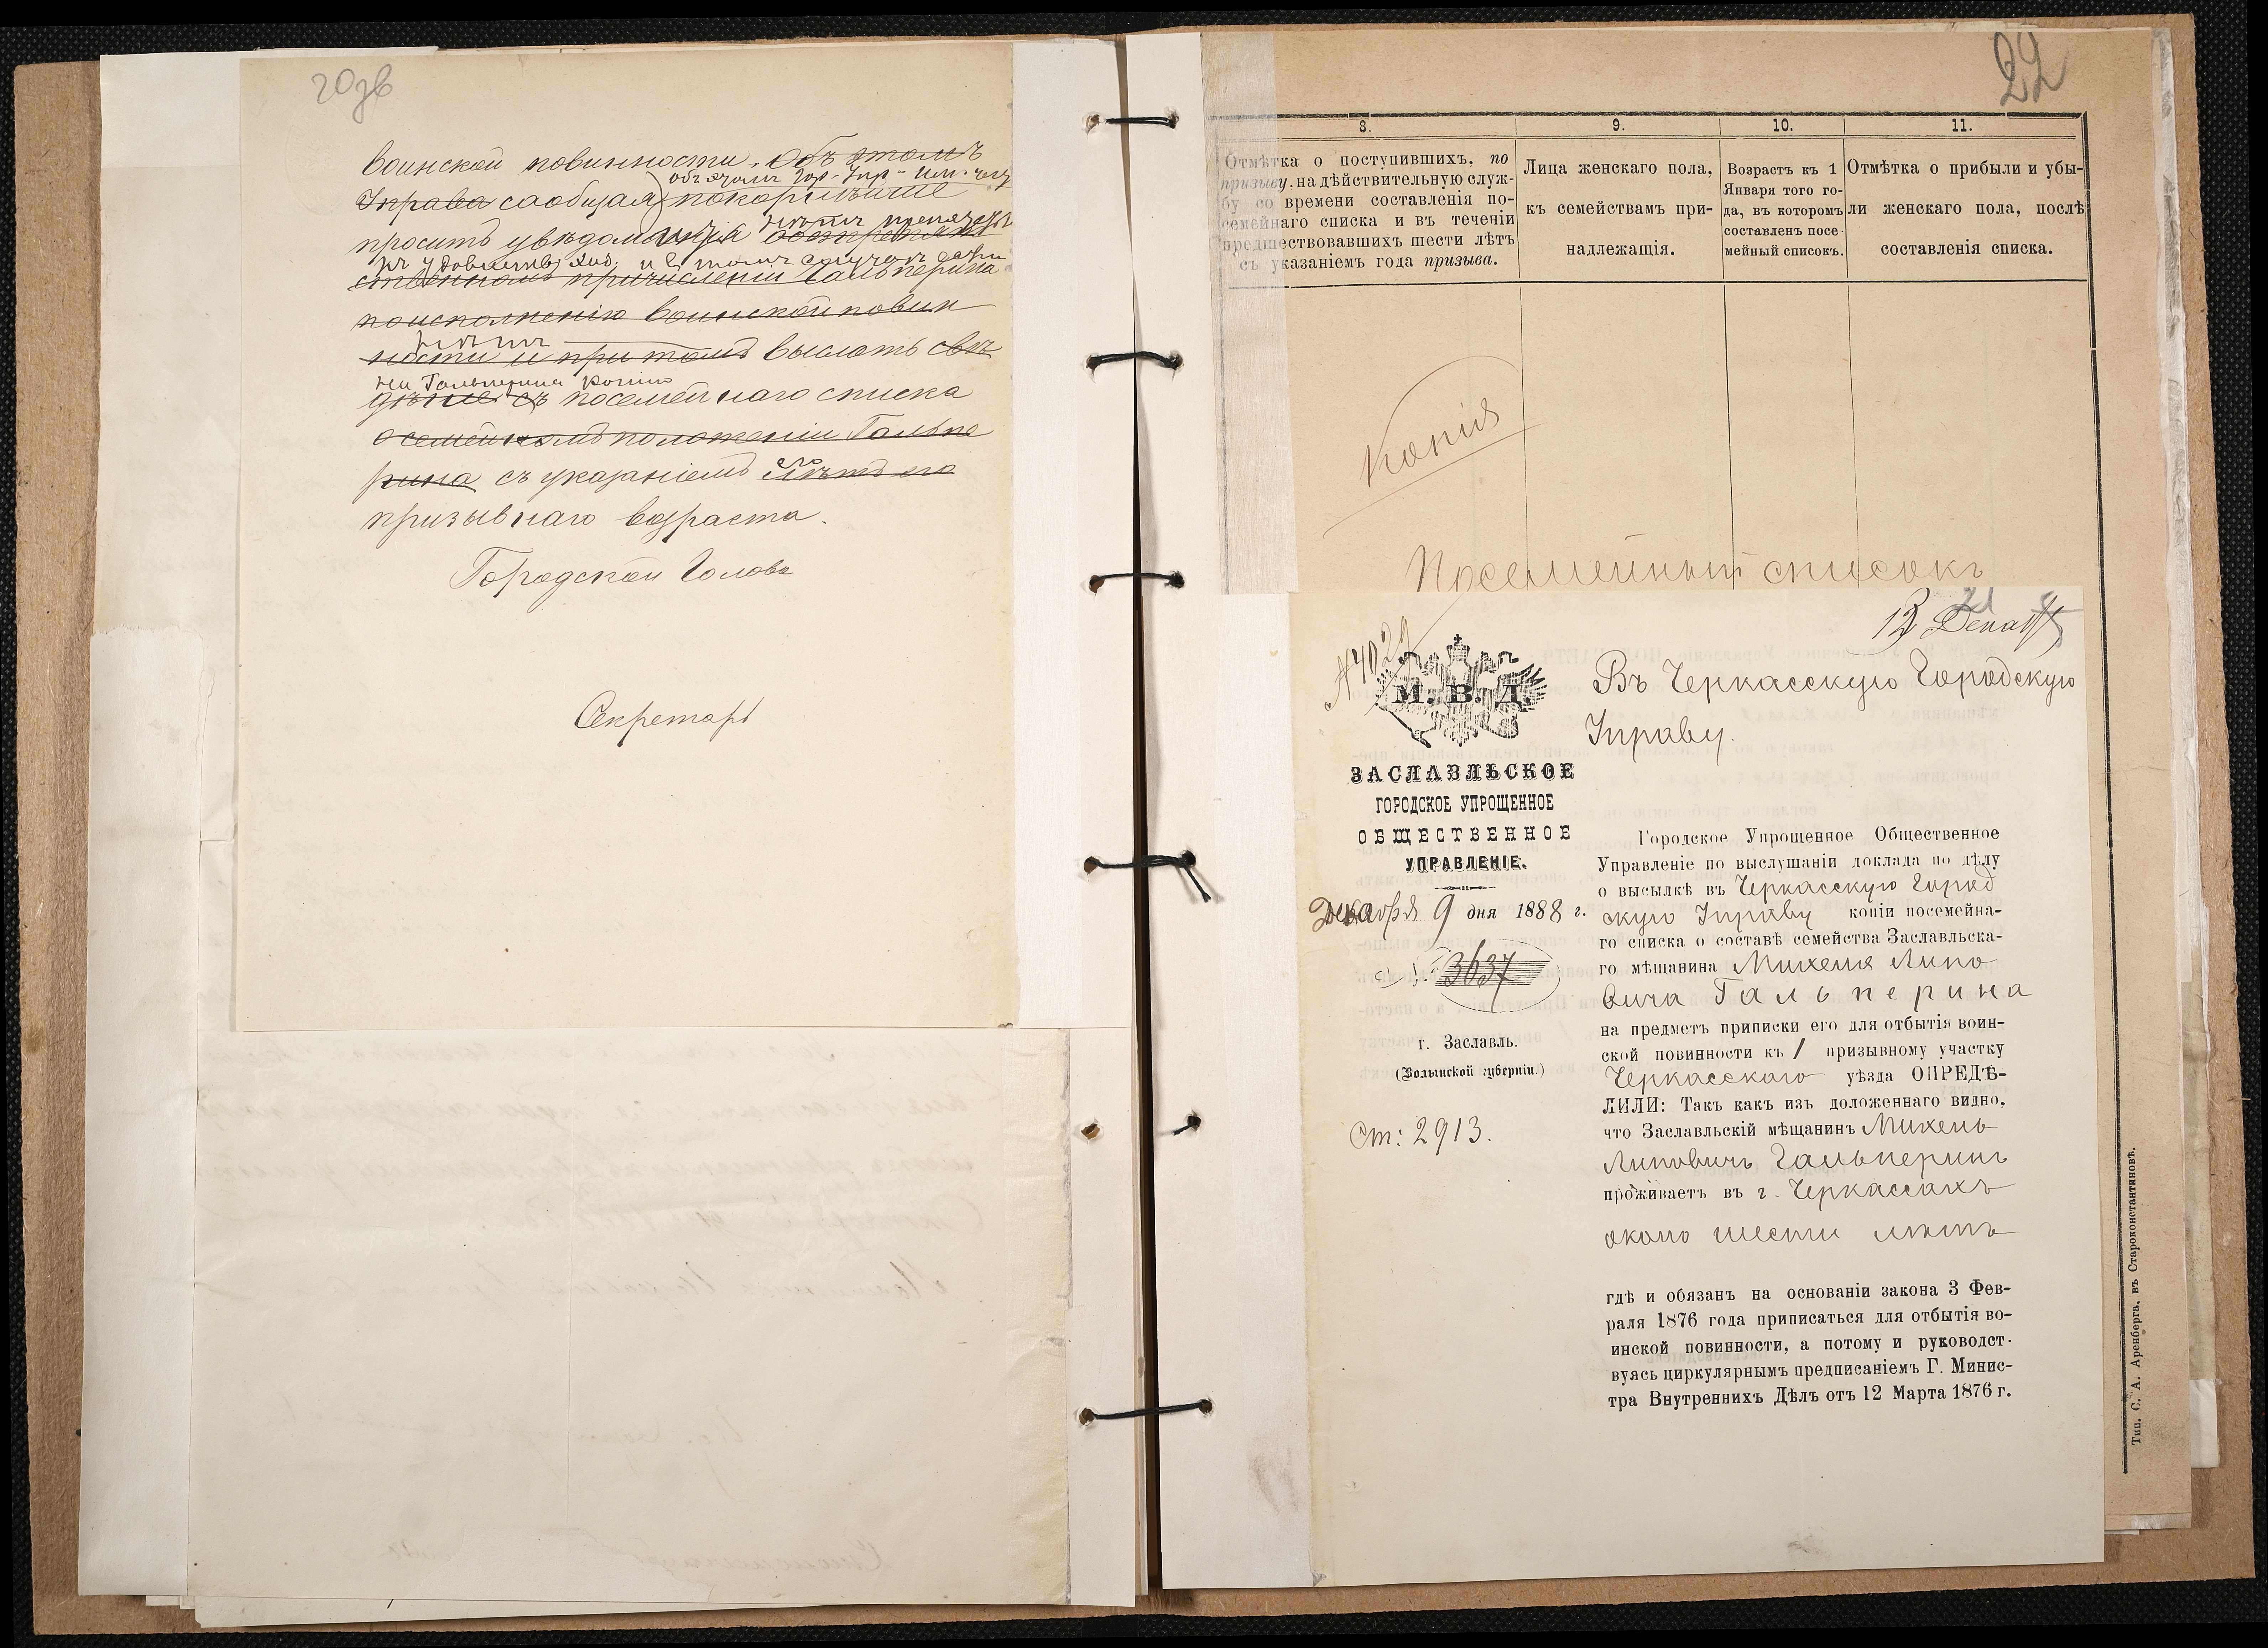 20зв
воинской повинности. Объ этомъ
объ этомъ Гор. Упр. им. честь
Управа сообщая покорнѣйше
нѣтъ ли препятствія
проситъ увѣдомленія
къ удовлетв. ход. и въ томъ случаѣ если
ственномъ причисленіи Гальперина
по исполненію воинской повин
нѣтъ
ности и при томъ выслать свѣ
на Гальперина копію
дѣніе съ посемейнаго списка
о семейномъ положеніи Гальпе
рина съ указаніемъ лѣтъ его
призывнаго возраста.
Городской Голова
Секретарь
22
8.
9.
10.
11.
Отмѣтка о поступившихъ, по
призыву, на дѣйствительную служ-
бу со времени составленія по-
семейнаго списка и въ теченіи
предшествовавшихъ шести лѣтъ
съ указаніемъ года призыва.
Лица женскаго пола,
къ семействамъ при-
надлежащія.
Возрастъ къ 1
Января того го-
да, въ которомъ
составленъ посе-
мейный списокъ.
Отмѣтка о прибыли и убы-
ли женскаго пола, послѣ
составленія списка.
Копія
Посемейный списокъ
21
13 Декаб
М. В. Д.
ЗАСЛАВЛЬСКОЕ
ГОРОДСКОЕ УПРОЩЕННОЕ
ОБЩЕСТВЕННОЕ
УПРАВЛЕНІЕ.
Декабря 9 дня 1888 г.
№ 3637
г. Заславль.
(Волынской губерніи.)
Ст: 2913.
Въ Черкасскую Городскую
Управу.
Городское Упрощенное Общественное
Управленіе по выслушаніи доклада по дѣлу
о высылкѣ въ Черкасскую Город
скую Управу копіи посемейна-
го списка о составѣ семейства Заславльска-
го мѣщанина Михеля Липо
вича Гальперина
на предметъ приписки его для отбытія воин-
ской повинности къ 1 призывному участку
Черкасскаго уѣзда ОПРЕДѢ-
ЛИЛИ: Такъ какъ изъ доложеннаго видно,
что Заславльскій мѣщанинъ Михель
Липовичъ Гальперинъ
проживаетъ въ г. Черкассахъ
около шести лѣтъ
гдѣ и обязанъ на основаніи закона 3 Фев-
раля 1876 года приписаться для отбытія во-
инской повинности, а потому и руководст-
вуясь циркулярнымъ предписаніемъ Г. Минис-
тра Внутреннихъ Дѣлъ отъ 12 Марта 1876 г.
Тип. С. А. Аренберга, въ Староконстантиновѣ.